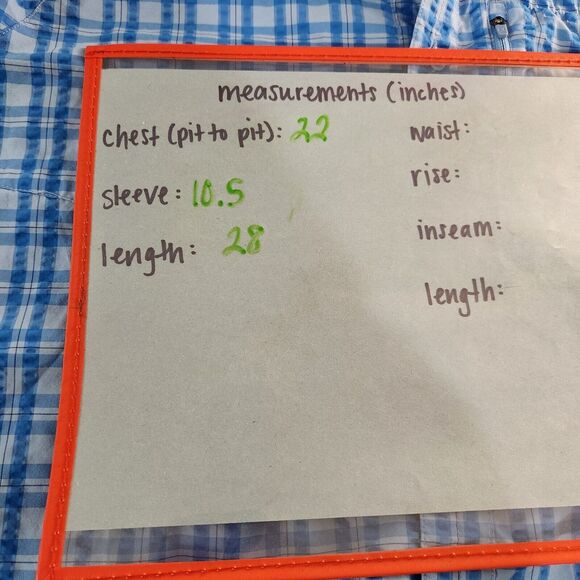 measurements (inches)
chest (pit to pit): 22
sleeve: 10.5
length: 28
waist:
rise:
inseam:
length: